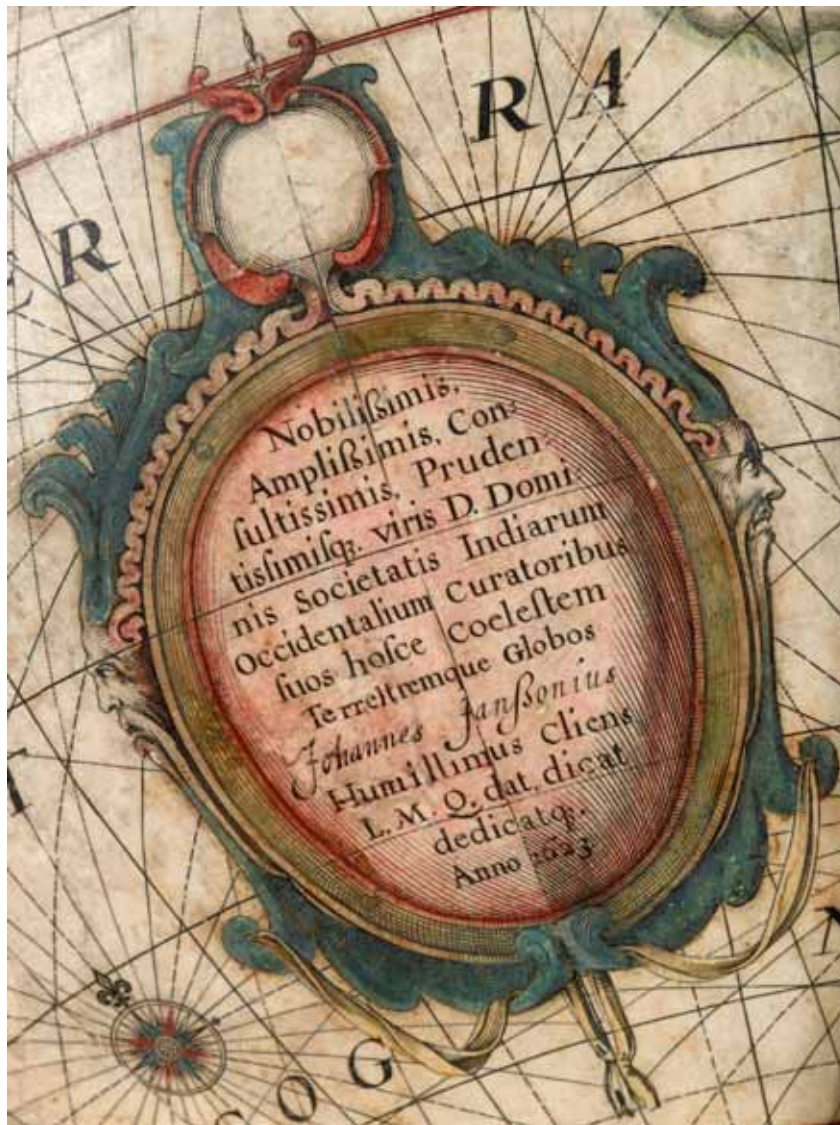 RA
ER
Nobilißimis,
Amplißimis, Con:
ſultissimis, Pruden:
tisſimiſq₃. viris D. Domi:
nis Societatis Indiarum
Occidentalium Curatoribus
ſuos hoſce Coeleſtem
Terreſtremque Globos
Johannes Janßonius
Humillimus Cliens
L. M. Q. dat, dicat
dedicatq₃.
Anno 1623
COG